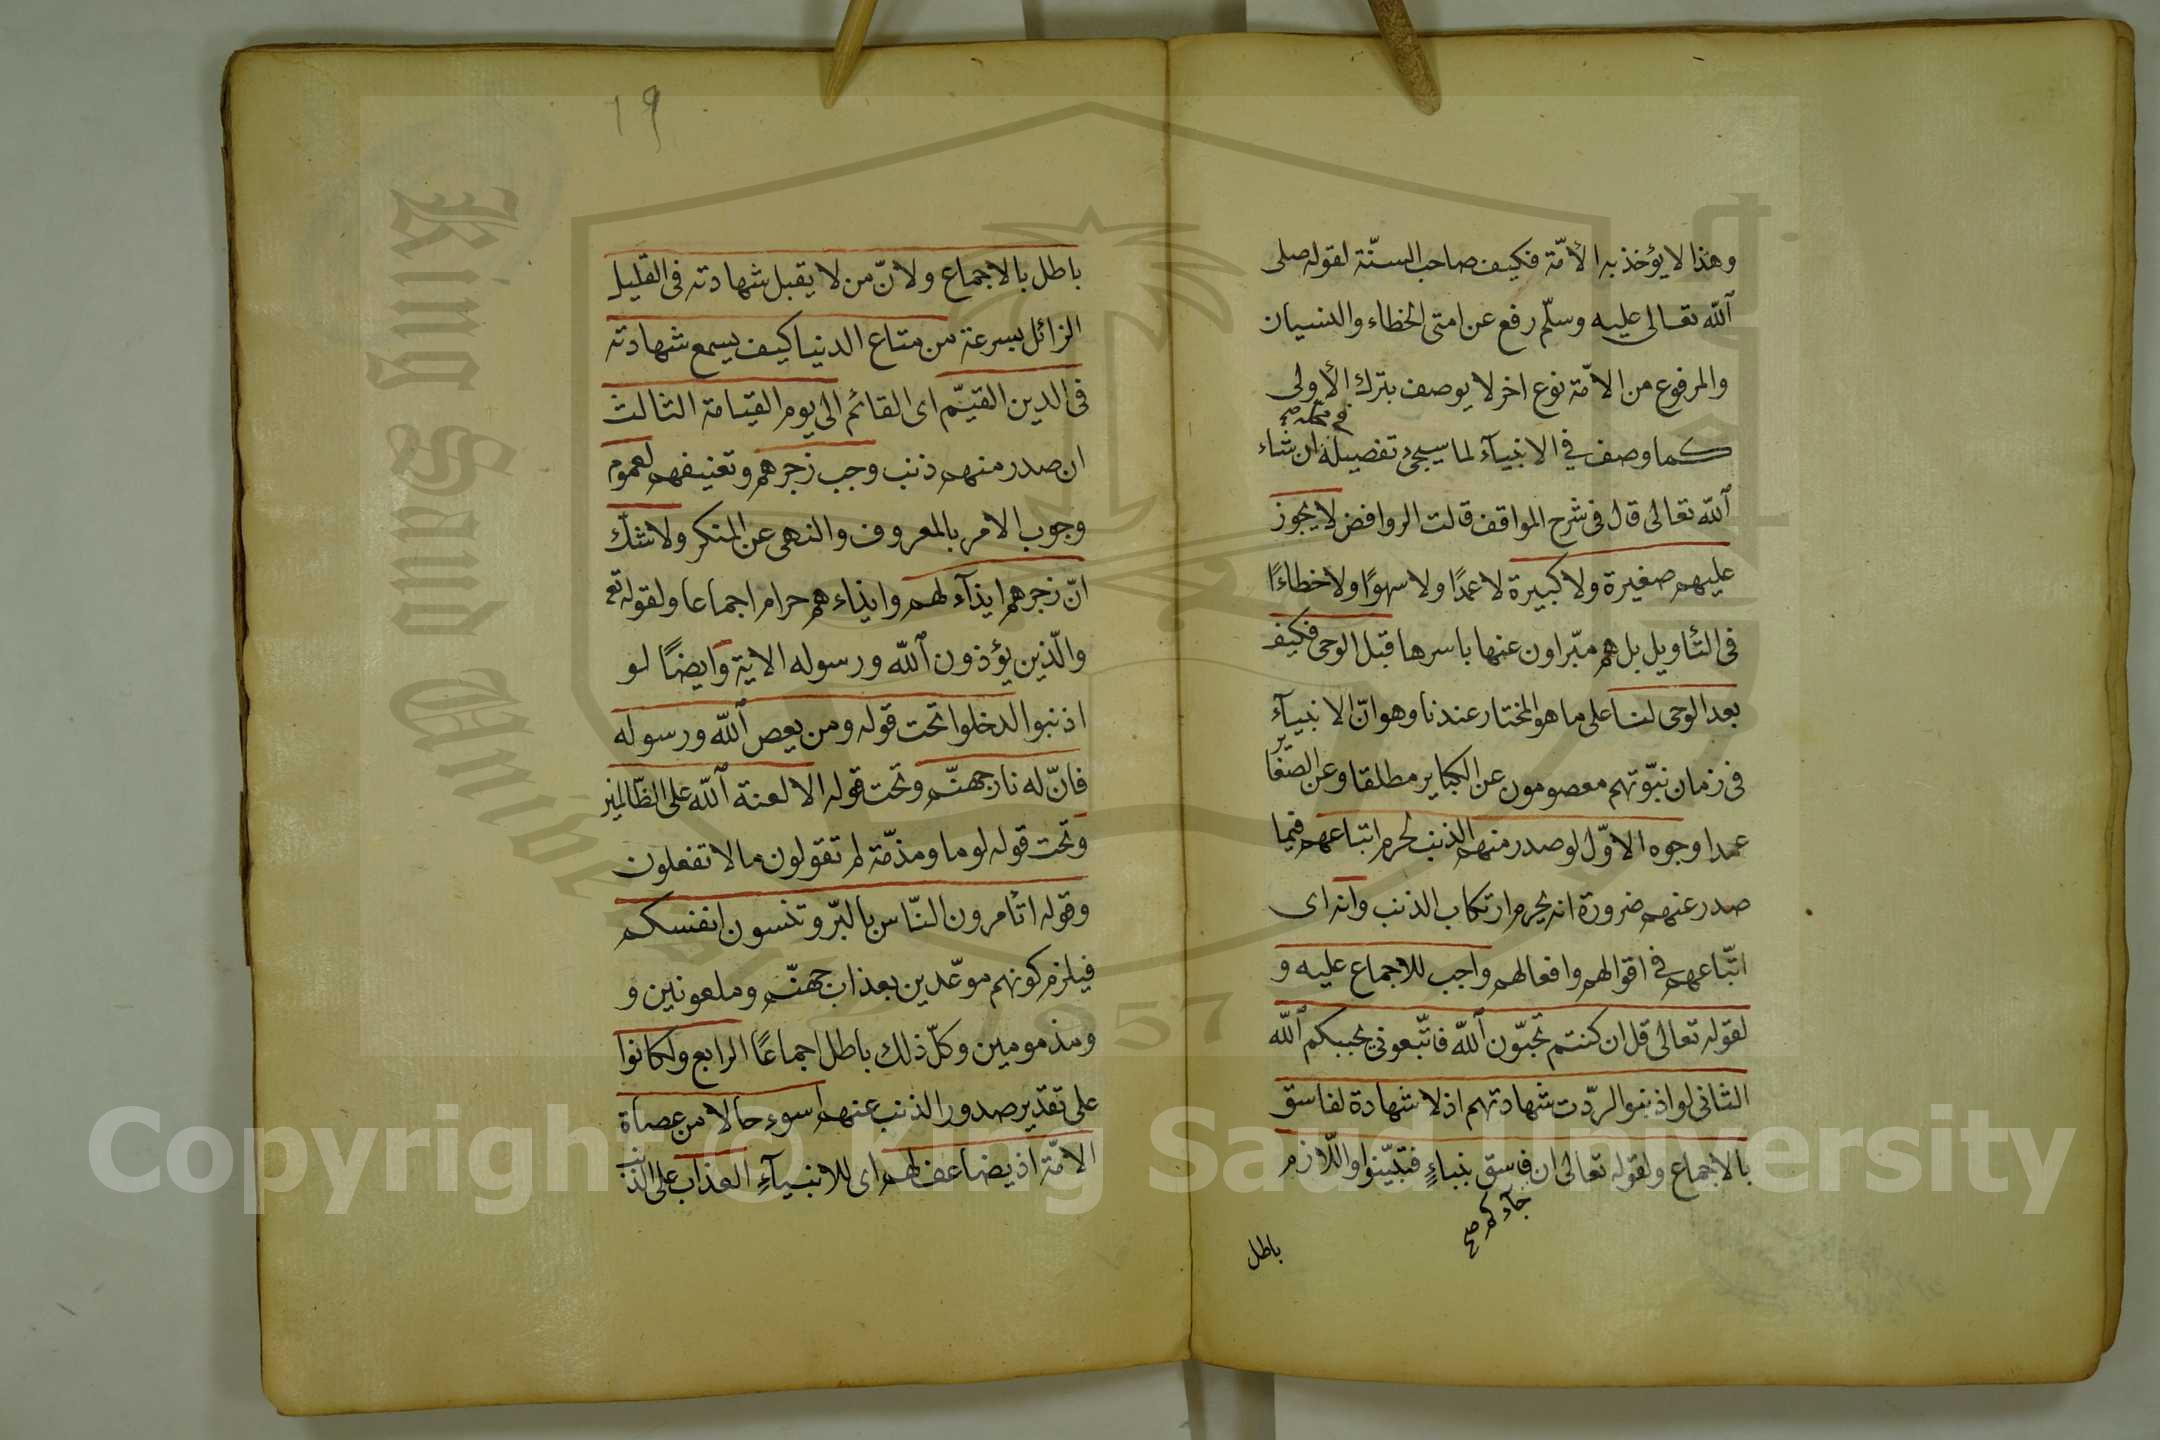 وهذا لا يؤخذ به الأمّة فكيف صاحب السنّة لقوله صلى
الله تعالى عليه وسلّم رفع عن امتى الخطاء والنسيان
والمرفوع من الامّة نوع اخر لا يوصف بترك الأولى
كما وصف في الانبيآء لما سيجئ تفصيله ان شاء
في محله صح
الله تعالى قال فى شرح المواقف قالت الروافض لا يجوز
عليهم صغيرة ولا كبيرة لا عمدًا ولا سهوًا ولا خطاءًا
فى التأويل بل هم مبّراون عنها باسرها قبل الوحى فكيف
بعد الوحى لنا على ما هو المختار عندنا وهو انّ الانبيآء
فى زمان نبوّتهم معصومون عن الكباير مطلقا وعن الصغاير
عمدا وجوه الاوّل لو صدر منهم الذنب لحرم اتباعهم فيما
صدر عنهم ضرورة انه يحرم ارتكاب الذنب وانه اى
اتّباعهم في اقوالهم وافعالهم واجب للاجماع عليه و
لقوله تعالى قل ان كنتم تحبّون الله فاتّبعوني يحببكم الله
الثانى لو اذنبوا لردّت شهادتهم اذ لا شهادة لفاسق
بالاجماع ولقوله تعالى ان فاسق بنباءٍ فتبيّنوا واللّازم
جآءكم صح
باطل
١٩
باطل بالاجماع ولانّ من لا يقبل شهادته فى القليل
الزائل بسرعة من متاع الدنيا كيف يسمع شهادته
فى الدين القيّم اى القائم الى يوم القيامة الثالث
ان صدر منهم ذنب وجب زجرهم وتعنيفهم لعموم
وجوب الامر بالمعروف والنهى عن المنكر ولا شكّ
انّ زجرهم ايذآء لهم وايذاءهم حرام اجماعا ولقوله تع
والّذين يؤذون الله ورسوله الاية وايضًا لو
اذنبوا لدخلوا تحت قوله ومن يعص الله ورسوله
فانّ له نار جهنّم وتحت قوله الا لعنة الله على الظّالمين
وتحت قوله لوما ومذمّة لم تقولون مالا تفعلون
وقوله اتأمرون النّاس بالبرّ وتنسون انفسكم
فيلزم كونهم موعّدين بعذاب جهنّم وملعونين و
ومذمومين وكلّ ذلك باطل اجماعًا الرابع ولكانوا
على تقدير صدور الذنب عنهم اسوء حالا من عصاة
الامّة اذ يضاعف لهم اى للانبيآءِ العذاب على الذنب
King Saud University
1957
Copyright © King Saud University